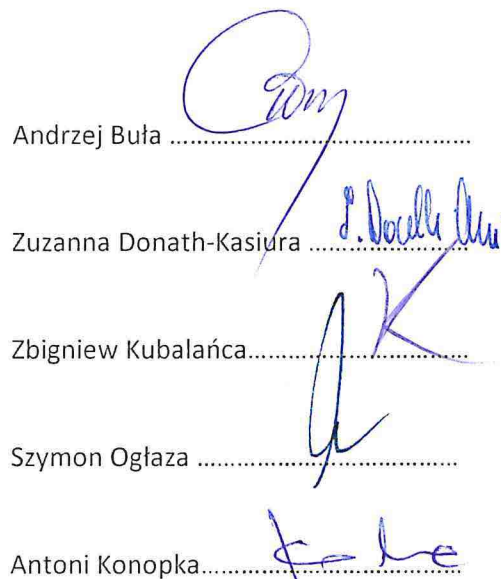 Andrzej Buła ........................................
Zuzanna Donath-Kasiura .....................
Zbigniew Kubalańca.............................
Szymon Ogłaza ...................................
Antoni Konopka.......................................